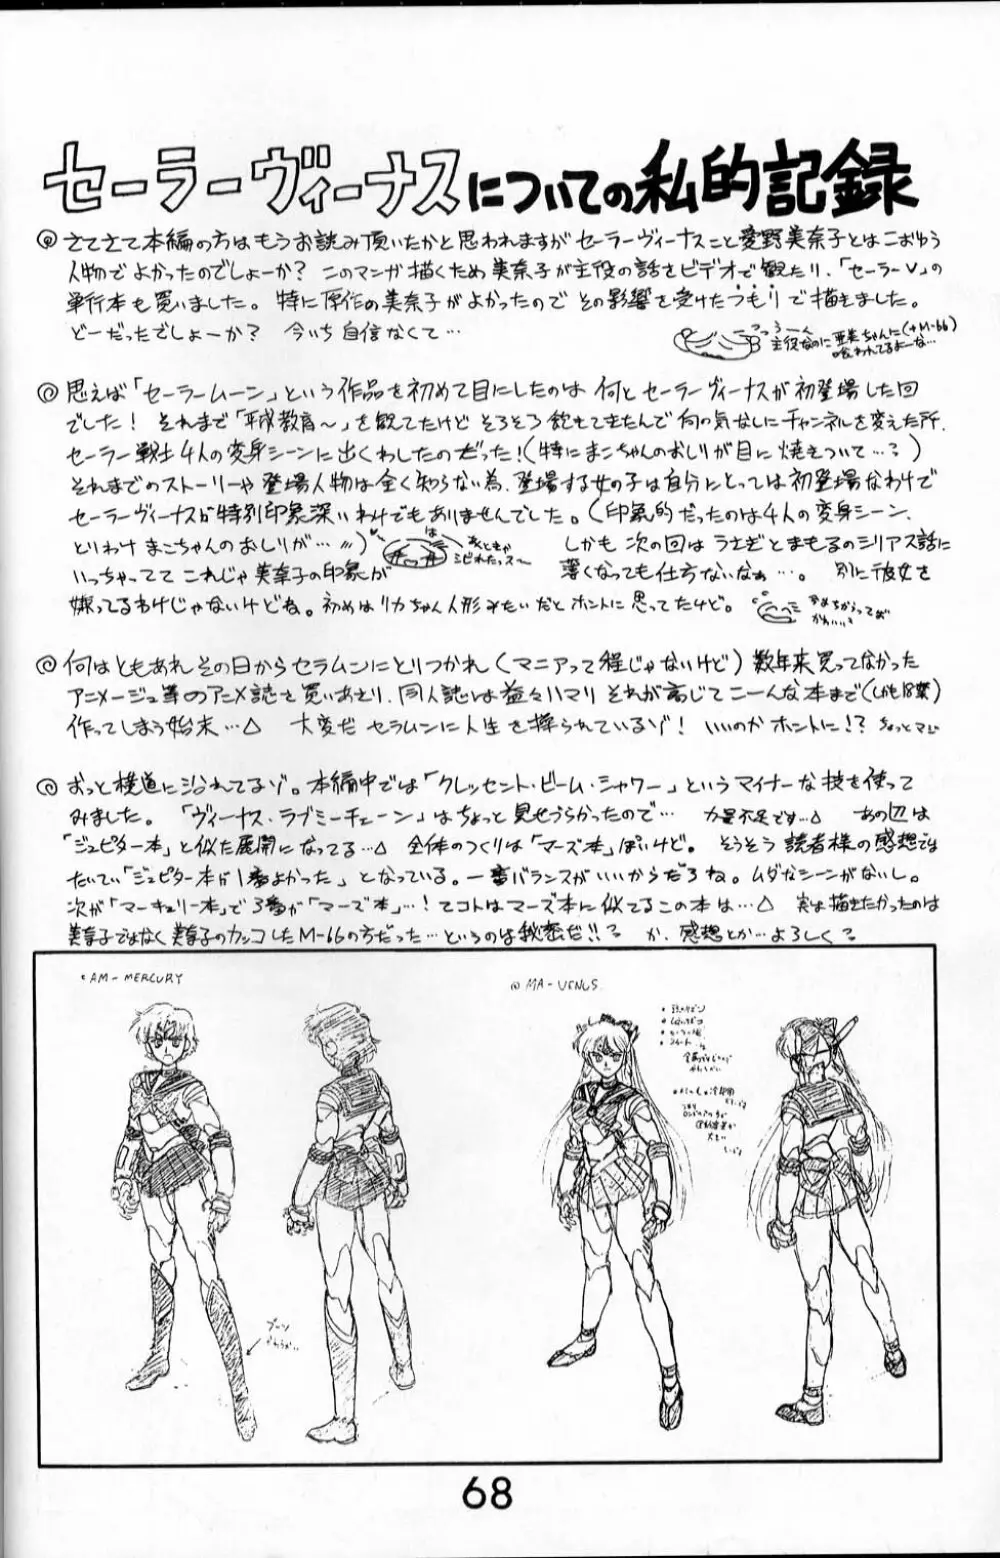 セーラーヴィーナスについての私的記録
さてさて本編の方はもうお読み頂いたかと思われますがセーラーヴィーナスこと愛野美奈子とはこおゆう
人物でよかったのでしょーか？ このマンガ描くため美奈子が主役の話をビデオで観たり、「セーラーV」の
単行本も買いました。特に原作の美奈子がよかったので その影響を受けたつもりで描きました。
どーだったでしょーか？ 今いち自信なくて…
主役なのに亜美ちゃんに(+M-66)
喰われてるよーな…
思えば「セーラームーン」という作品を初めて目にしたのは 何とセーラーヴィーナスが初登場した回
でした！ それまで「平成教育〜」を観てたけど そろそろ飽きてきたんで何の気なしにチャンネルを変えた所、
セーラー戦士4人の変身シーンに出くわしたのだった！（特にまこちゃんのおしりが目に焼きついて…？）
それまでのストーリーや登場人物は全く知らない為、登場する女の子は自分にとっては初登場なわけで
セーラーヴィーナスが特別印象深いわけでもありませんでした。（印象的だったのは4人の変身シーン、
とりわけまこちゃんのおしりが…〃） しかも 次の回は うさぎとまもるのシリアス話に
いっちゃってて これじゃ美奈子の印象が 薄くなっても仕方ないなぁ…。 別に彼女を
嫌ってるわけじゃないけどね。初めはリカちゃん人形みたいだとホントに思ってたけど。
何はともあれ その日からセラムンにとりつかれ（マニアって程じゃないけど）数年来買ってなかった
アニメージュ等のアニメ誌を買いあさり、同人誌は益々ハマリ それが高じてこーんな本まで（しかも18禁）
作ってしまう始末…△ 大変だ セラムンに人生を操られているゾ！ いいのかホントに！？ ちょっとマジ
おっと横道に逸れてるゾ。本編中では「クレッセント・ビーム・シャワー」というマイナーな技を使って
みました。「ヴィーナス・ラブミーチェーン」はちょっと見せづらかったので… 力量不足です…△ あの辺は
「ジュピター本」と似た展開になってる…△ 全体のつくりは「マーズ本」ぽいけど。 そうそう 読者様の感想では
だいたい「ジュピター本が1番よかった」となっている。一番バランスがいいからだろね。ムダなシーンがないし。
次が「マーキュリー本」で3番が「マーズ本」…！てコトはマーズ本に似てるこの本は…△ 実は描きたかったのは
美奈子ではなく美奈子のカッコしたM-66の方だった…というのは秘密だ!!？ か、感想とか…よろしく？
AM-MERCURY
MA-VENUS
ブーツ
68